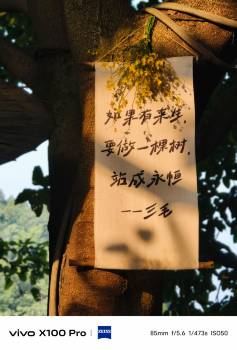 如果有来生，
要做一棵树，
站成永恒
——三毛
vivo X100 Pro | ZEISS
85mm f/5.6 1/473s ISO50